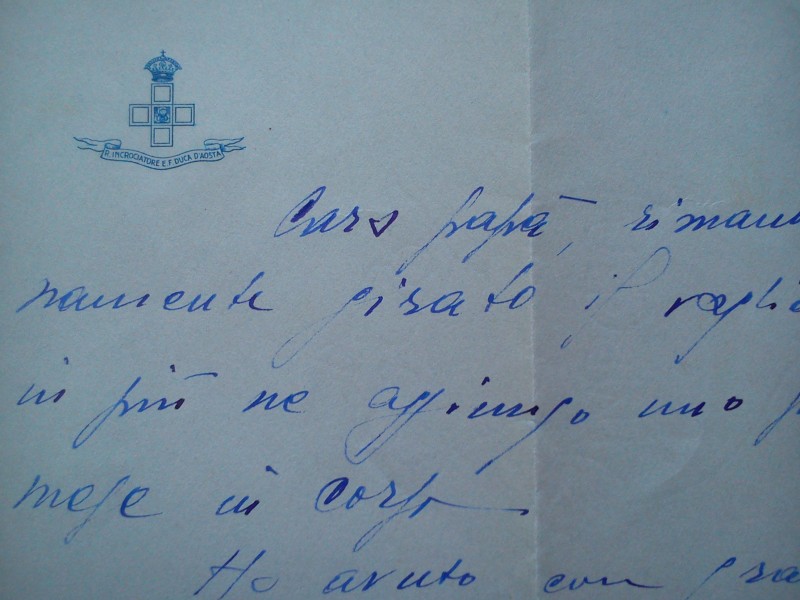 R. INCROCIATORE E. F. DUCA D'AOSTA
Caro papà, riman
namente girato il vaglia
in più ne aggiungo uno
mese in corso
Ho avuto con gra